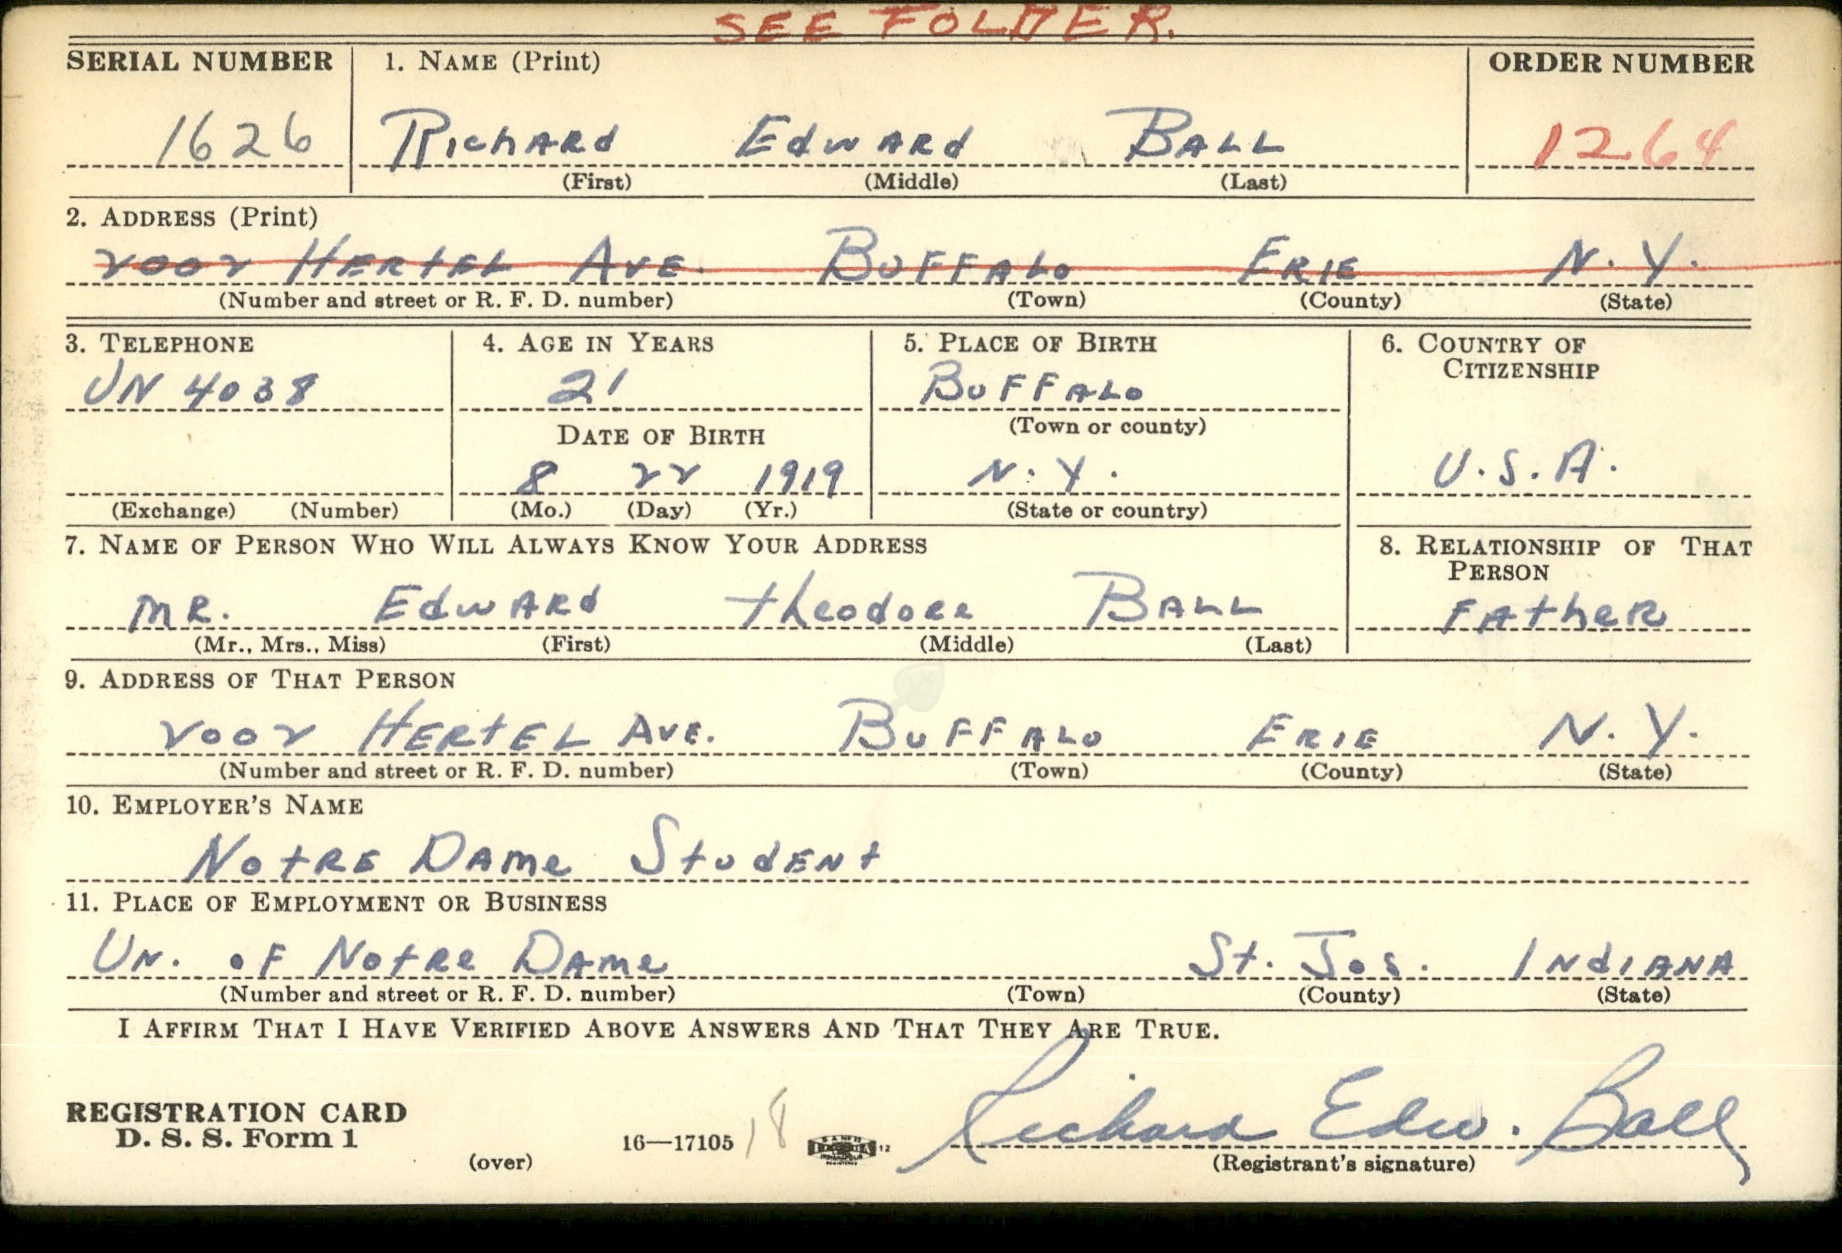 SEE FOLDER.
SERIAL NUMBER 1. NAME (Print) ORDER NUMBER
1626 Richard Edward Ball 1264
(First) (Middle) (Last)
2. ADDRESS (Print)
2002 Hertel Ave. Buffalo Erie N.Y.
(Number and street or R. F. D. number) (Town) (County) (State)
3. TELEPHONE 4. AGE IN YEARS 5. PLACE OF BIRTH 6. COUNTRY OF CITIZENSHIP
UN 4038 21 Buffalo
DATE OF BIRTH (Town or county)
8 22 1919 N.Y. U.S.A.
(Exchange) (Number) (Mo.) (Day) (Yr.) (State or country)
7. NAME OF PERSON WHO WILL ALWAYS KNOW YOUR ADDRESS 8. RELATIONSHIP OF THAT PERSON
MR. Edward Theodore Ball Father
(Mr., Mrs., Miss) (First) (Middle) (Last)
9. ADDRESS OF THAT PERSON
2002 Hertel Ave. Buffalo Erie N.Y.
(Number and street or R. F. D. number) (Town) (County) (State)
10. EMPLOYER'S NAME
Notre Dame Student
11. PLACE OF EMPLOYMENT OR BUSINESS
Un. of Notre Dame St. Jos. Indiana
(Number and street or R. F. D. number) (Town) (County) (State)
I AFFIRM THAT I HAVE VERIFIED ABOVE ANSWERS AND THAT THEY ARE TRUE.
REGISTRATION CARD
D. S. S. Form 1 16—17105 18 12 Richard Edw. Ball
(over) (Registrant's signature)